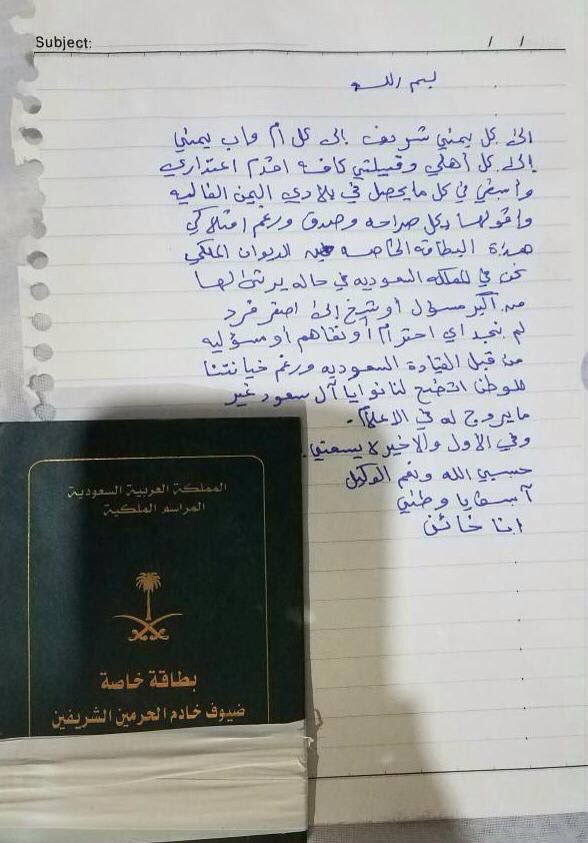 Subject: / /
بسم الله
إلى كل يمني شريف إلى كل أم وأب يمني
إلى كل أهلي وقبيلتي كافه اقدم اعتذاري
وأسفي في كل ما يحصل في بلادي اليمن الغاليه
واقولها بكل صراحه وصدق ورغم امتلاكي
هذة البطاقه الخاصه من الديوان الملكي
نحن في المملكه السعوديه في حاله يرثى لها
من أكبر مسؤل أو شيخ إلى اصغر فرد
لم نجد اي احترام أو تفاهم أو مسؤليه
من قبل القيادة السعوديه ورغم خيانتنا
للوطن اتضح لنا نوايا آل سعود غير
ما يروج له في الاعلام.
وفي الأول والأخير لا يسعني.
حسبي الله ونعم الوكيل
آسف يا وطني
انا خائن
المملكة العربية السعودية
المراسم الملكية
بطاقة خاصة
ضيوف خادم الحرمين الشريفين